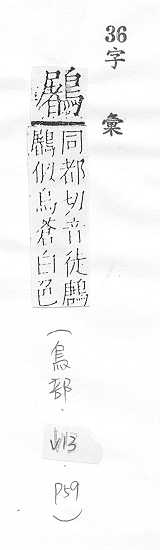 36字 彙
鷵
同都切音徒鶶
鷵似烏蒼白色
(鳥部．13．P59)